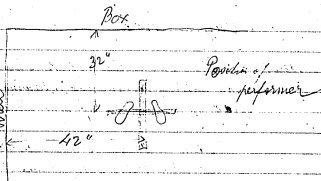 Box
32"
Position of
performer
42"